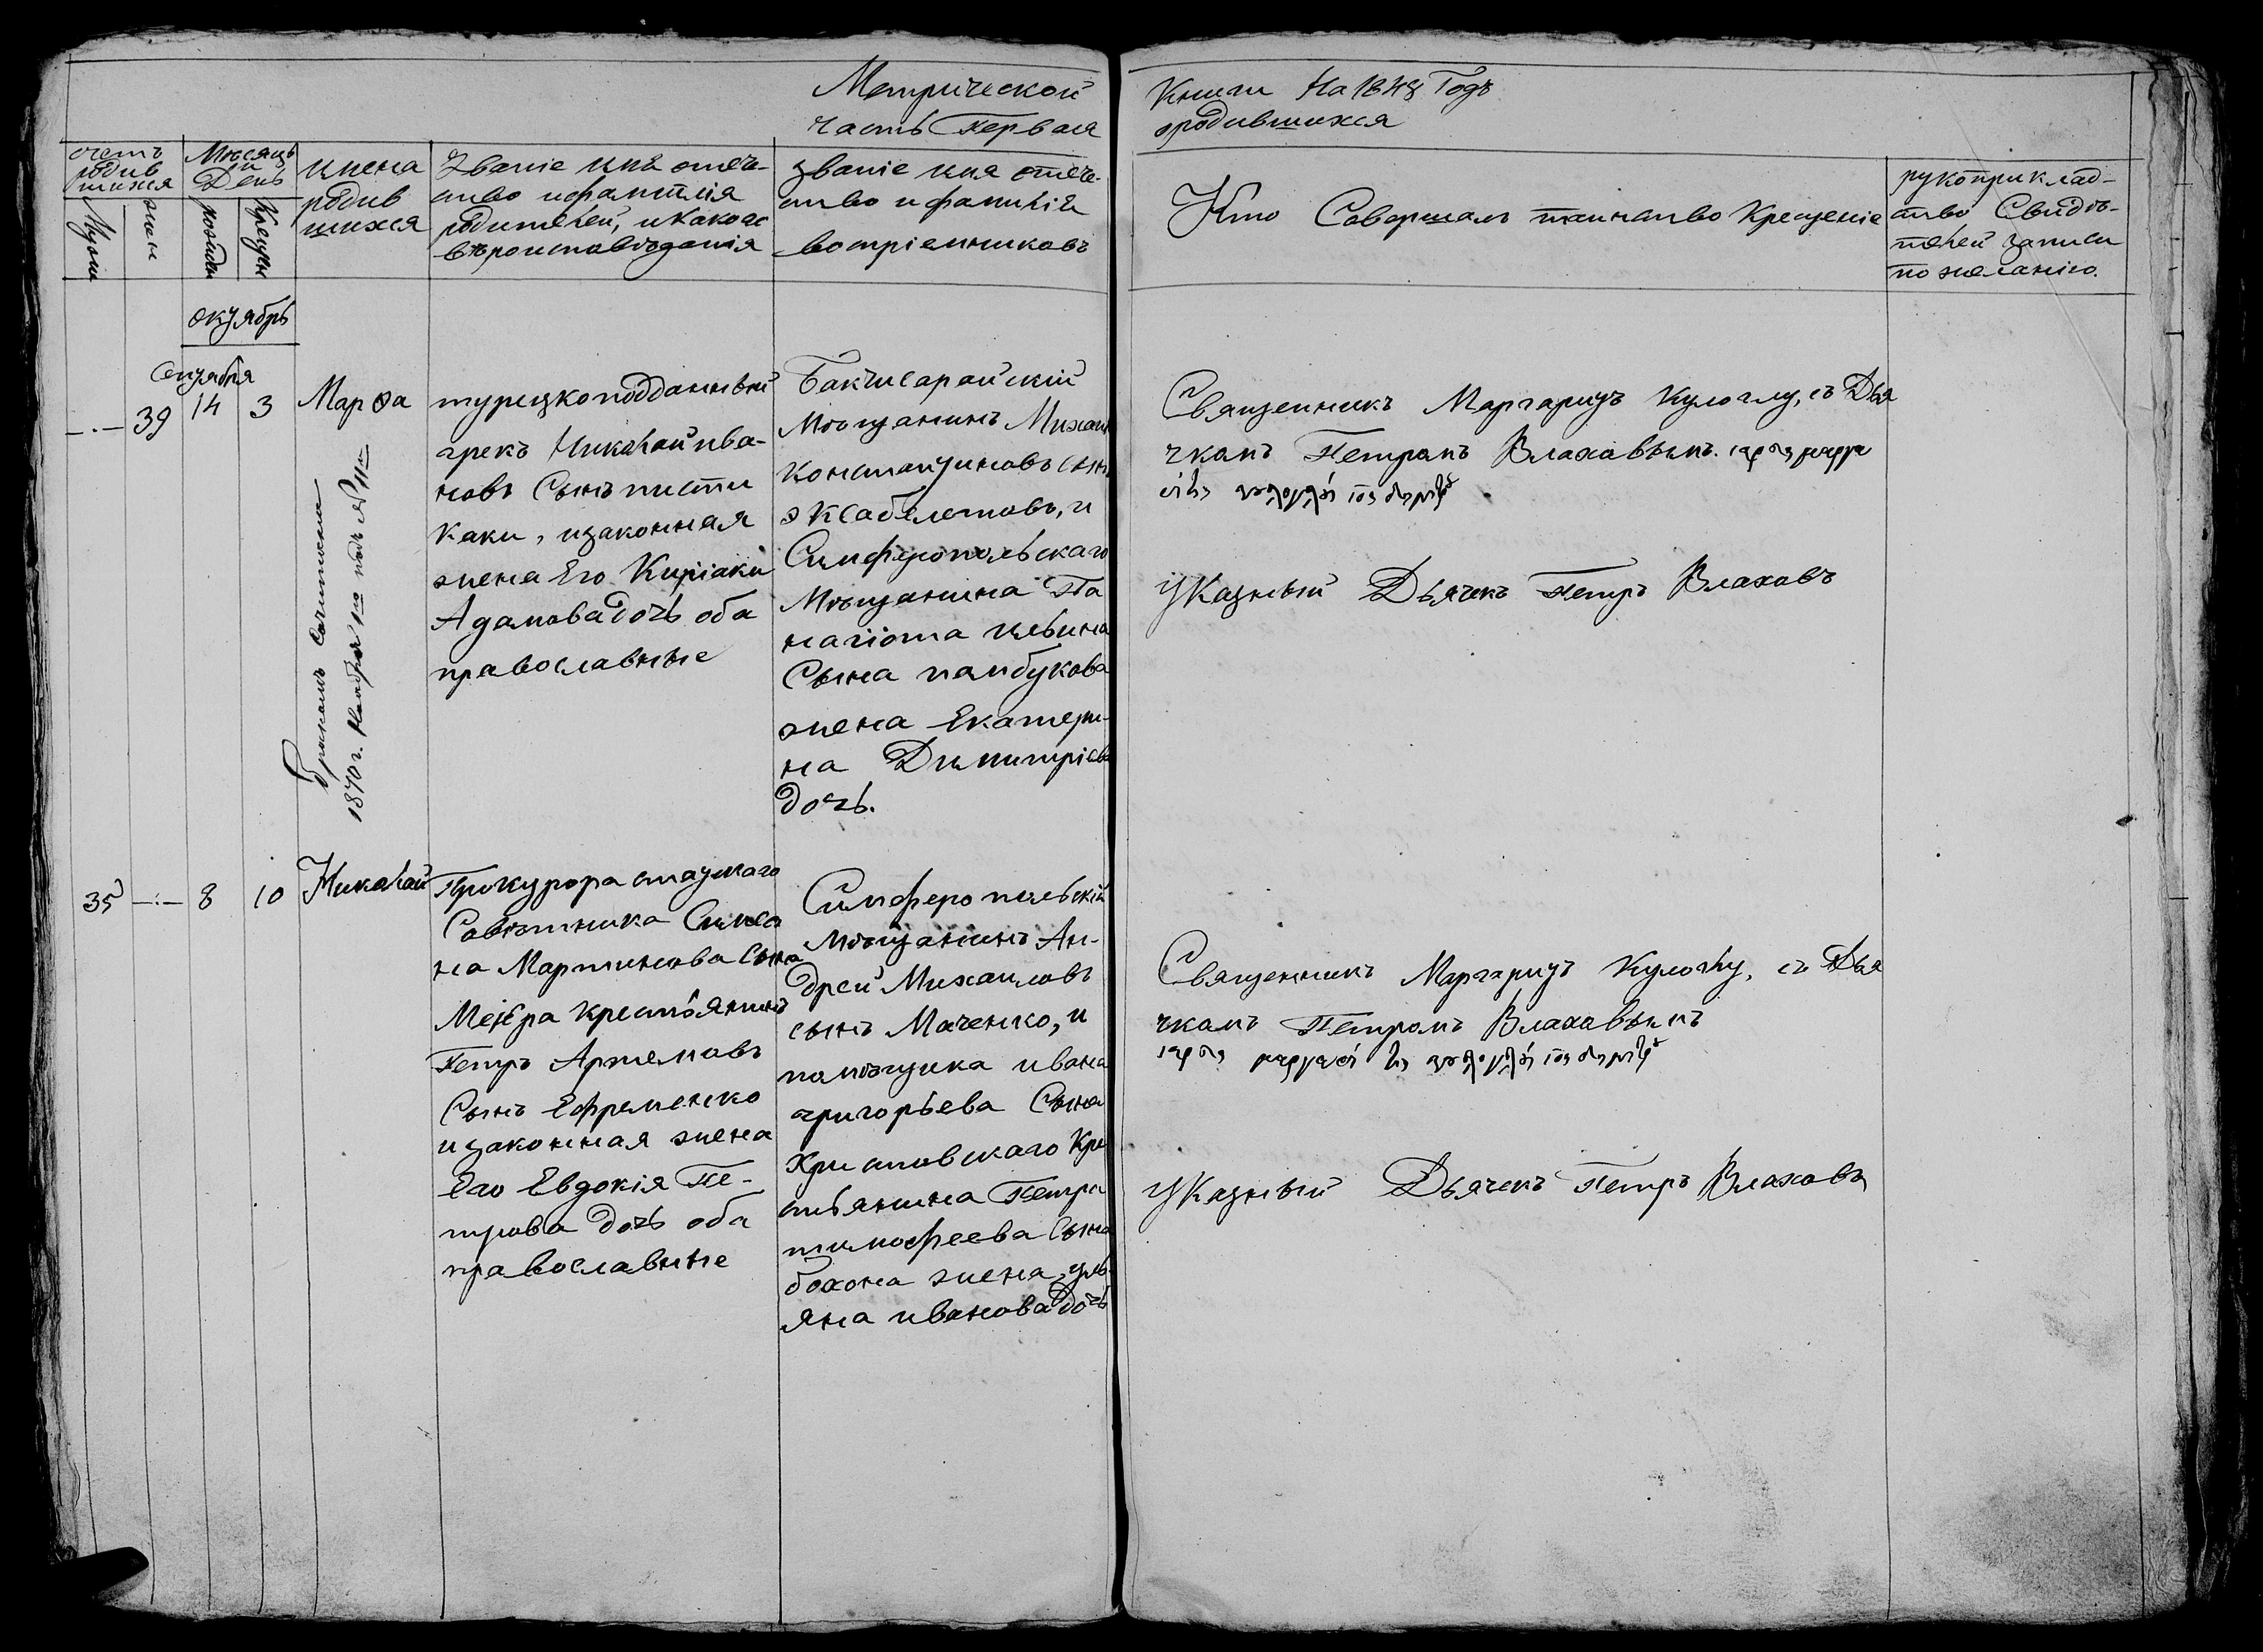 Метрической
часть Первая
Книги На 1848 Годъ
о родившихся
счетъ
родив
шихся
Мужи
жен
Мѣсяцъ
и
День
рожден
Крещен
имена
родив
шихся
Званіе имя отече-
ство и фамилія
родителей, и Какого
вѣроисповѣданія
Званіе имя отече-
ство и фамилія
воспріемниковъ
Кто Совершалъ таинство Крещеніе
рукоприклад-
ство Свидѣ-
телей записи
по желанію.
октябрь
Сентября
39 14 3
Марѳа
Бракомъ Сочтана
1870 г. Ноября подъ № 11
турецкоподданный
грекъ Николай ива-
новъ Сынъ писти
каки, изаконная
жена Его Киріаки
Адамова дочь оба
православные
Бакчисарайскій
Мѣщанинъ Михаил
константиновъ сын,
эксабелетовъ, и
Симферопольскаго
Мѣщанина Па
нагіота ильина
Сына памбукова
жена Екатери-
на Димитріева
дочь.
Священникъ Маргаритъ Кулоглу, съ Дья
чкомъ Петромъ Влаховымъ.
Указный Дьячекъ Петръ Влаховъ
35 8 10
Николай
Прокурора статскаго
Совѣтника Симео
на Мартинова Сына
Мейера крестьянинъ
Петръ Артемовъ
Сынъ Ефременко
изаконная жена
Его Евдокія Пе-
трова дочь оба
православные
Симферопольскій
Мѣщанинъ Ан-
дрей Михаиловъ
сынъ Маченко, и
помѣщика ивана
григорьева Сына
Христовскаго Кре
стьянина Петра
тимофеева Сына
бохона жена, уль-
яна иванова дочь
Священникъ Маргаритъ Кулоглу, съ Дья
чкомъ Петромъ Влаховымъ
Указный Дьячекъ Петръ Влаховъ